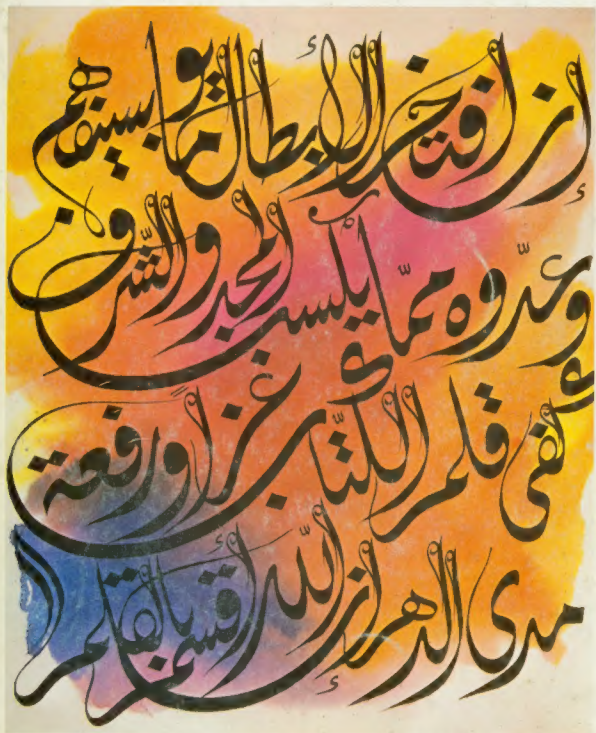 إن افتخر الإبطال يوما بسيفهم
وعدّوه ممّا يكسب المجد والشّرف
كفى قلم الكتّاب عزاً ورفعة
مدى الدهر إن اللّه أقسم بالقلم